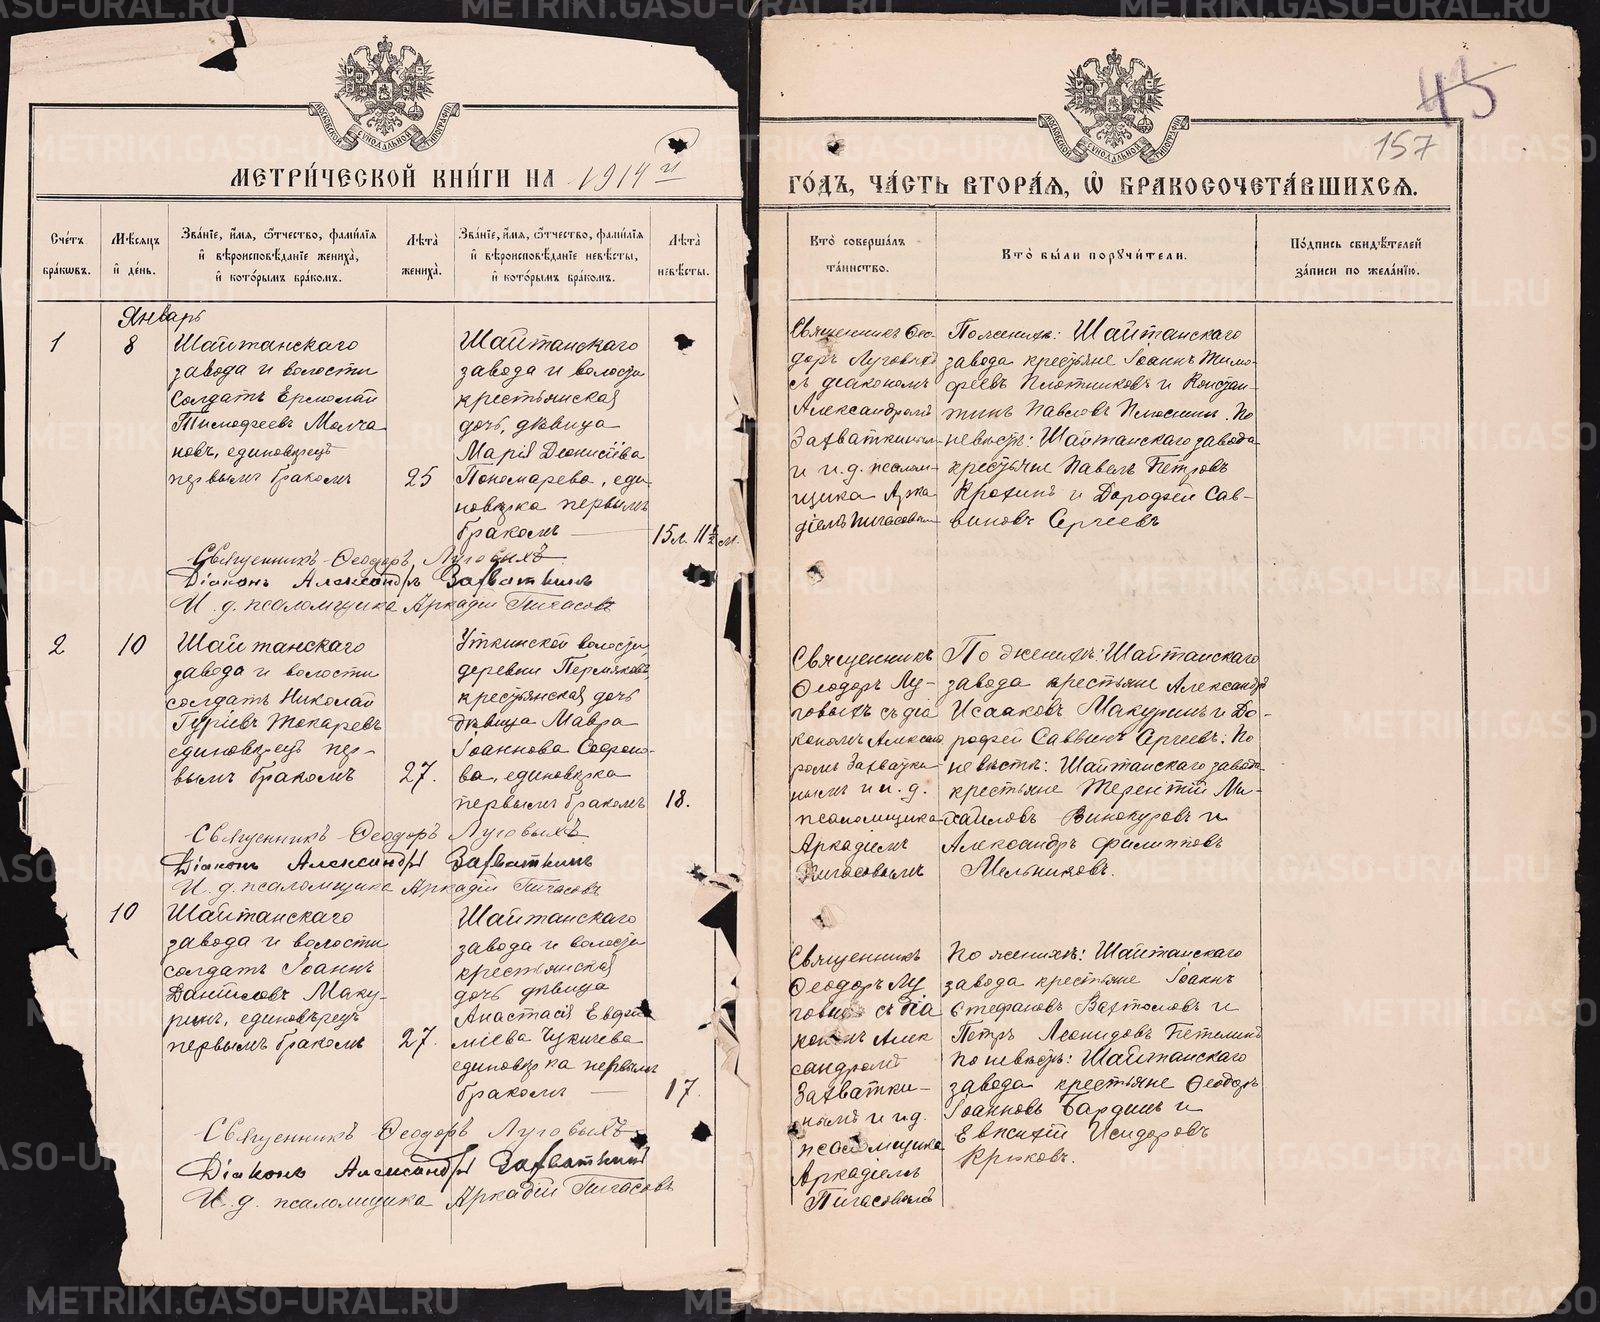 МЕТРИ́ЧЕСКОЙ КНИ́ГИ НА 1914 й
Сче́тъ бра́кѡвъ.
Мѣ́сяцъ и́ де́нь.
Зва́нїе, и́мя, ѻ҆́тчество, фами́лїя
и҆ вѣроисповѣ́данїе жениха̀,
и҆ кото́рымъ бра́комъ.
Лѣ́та жениха̀.
Зва́нїе, и́мя, ѻ҆́тчество, фами́лїя
и҆ вѣроисповѣ́данїе невѣ́сты,
и҆ кото́рымъ бра́комъ.
Лѣ́та невѣ́сты.
Январь
1
8
Шайтанскаго
завода и волости
солдатъ Ермолай
Тимофеевъ Молча
новъ, единовѣрецъ
первымъ бракомъ
25
Шайтанскаго
завода и волости
крестьянская
дочь, дѣвица
Марія Діонисіева
Пономарева, еди
новѣрка первымъ
бракомъ
15 л. 11½ м.
Священникъ Ѳеодоръ Луговыхъ
Діаконъ Александръ Захваткинъ
И. д. псаломщика Аркадій Пигасовъ
2
10
Шайтанскаго
завода и волости
солдатъ Николай
Гуріевъ Токаревъ
единовѣрецъ пер-
вымъ бракомъ
27.
Уткинской волости,
деревни Пермяковой
крестьянская дочь
дѣвица Мавра
Іоаннова Софроно-
ва, единовѣрка
первымъ бракомъ
18.
Священникъ Ѳеодоръ Луговыхъ
Діаконъ Александръ Захваткинъ
И. д. псаломщика Аркадій Пигасовъ
10
Шайтанскаго
завода и волости
солдатъ Іоаннъ
Даниловъ Маку-
ринъ, единовѣрецъ
первымъ бракомъ
27.
Шайтанскаго
завода и волости
крестьянская
дочь дѣвица
Анастасія Евфи
міева Чукичева
единовѣрка первымъ
бракомъ
17.
Священникъ Ѳеодоръ Луговыхъ
Діаконъ Александръ Захваткинъ
И. д. псаломщика Аркадій Пигасовъ
45
157
ГО́ДЪ, ЧА́СТЬ ВТОРА́Я, Ѽ БРАКОСОЧЕТА́ВШИХСЯ.
Кто̀ соверша́лъ
та́инство.
Кто̀ бы́ли порꙋчи́тели.
По́дпись свидѣ́телей
за́писи по жела́нїю.
Священникъ Ѳео-
доръ Луговыхъ
съ діакономъ
Александромъ
Захваткинымъ
и и. д. псалом-
щика Арка
діемъ Пигасовымъ
По женихѣ: Шайтанскаго
завода крестьяне Іоаннъ Тимо-
феевъ Плотниковъ и Констан-
тинъ Павловъ Плюснинъ. По
невѣстѣ: Шайтанскаго завода
крестьяне Павелъ Петровъ
и Дорофей Сав-
виновъ Сергеевъ
Священникъ
Ѳеодоръ Лу-
говыхъ съ діа
кономъ Алексан
ромъ Захватки
нымъ и и. д.
псаломщика
Аркадіемъ
Пигасовымъ
По женихѣ: Шайтанскаго
завода крестьяне Александръ
Исааковъ Макуринъ и До-
рофей Саввинъ Сергеевъ. По
невѣстѣ: Шайтанскаго завода
крестьяне Терентій Ми-
хаиловъ Винокуровъ и
Александръ Филипповъ
Мельниковъ.
Священникъ
Ѳеодоръ Лу
говыхъ съ діа
кономъ Алек
сандромъ
Захватки-
нымъ и и.д.
псаломщика
Аркадіемъ
Пигасовымъ
По женихѣ: Шайтанскаго
завода крестьяне Іоаннъ
Стефановъ Вахтомовъ и
Петръ Леонидовъ Петелинъ
По невѣстѣ: Шайтанскаго
завода крестьяне Ѳеодоръ
Іоанновъ Бардинъ и
Исидоровъ
Крюковъ.
METRIKI.GASO-URAL.RU